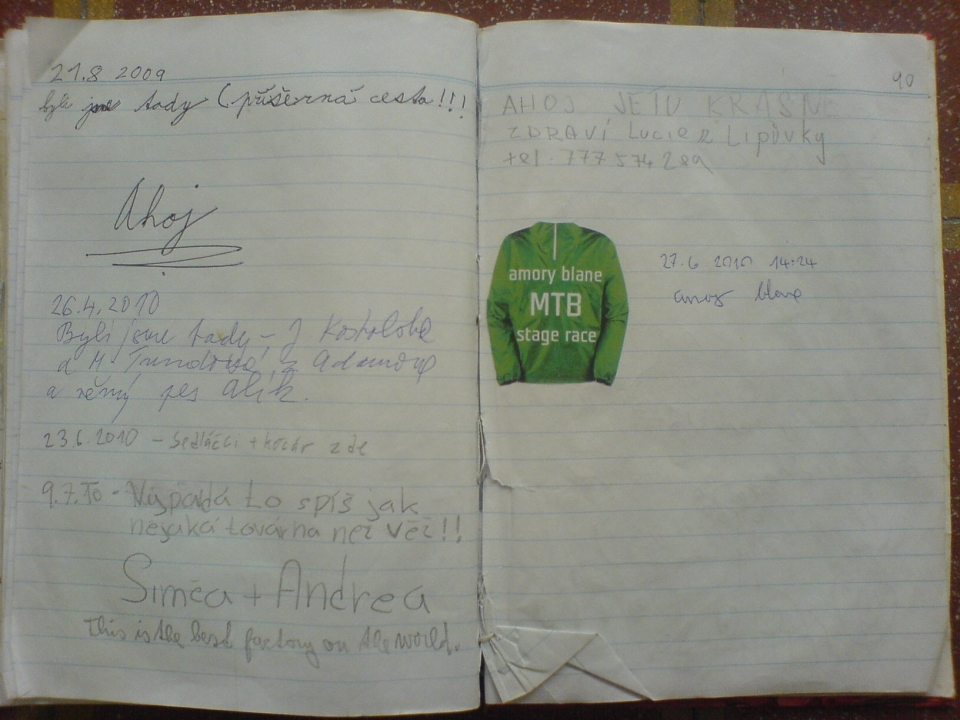 21.8 2009
byli jsme tady (příšerná cesta!!!
Ahoj
26.4.2010
Byli jsme tady - J
a M. a
a věrný pes Alík.
23.6.2010 - Sedláčci + kocór zde
9.7.10 - Vizpadá to spíš jak
nejaká továrna než věž!!
Simča + Andrea
This is the best factory on the world.
90
AHOJ JETU KRASNE
ZDRAVÍ LUCIE z Lipůvky
tel. 777 574 289
amory blane
MTB
stage race
27.6 2010 14:24
amory blane